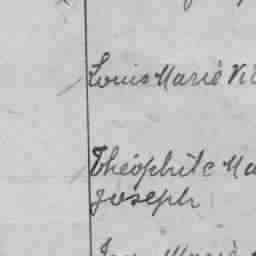 Louis Marie Vi
Théophile Ma
Joseph